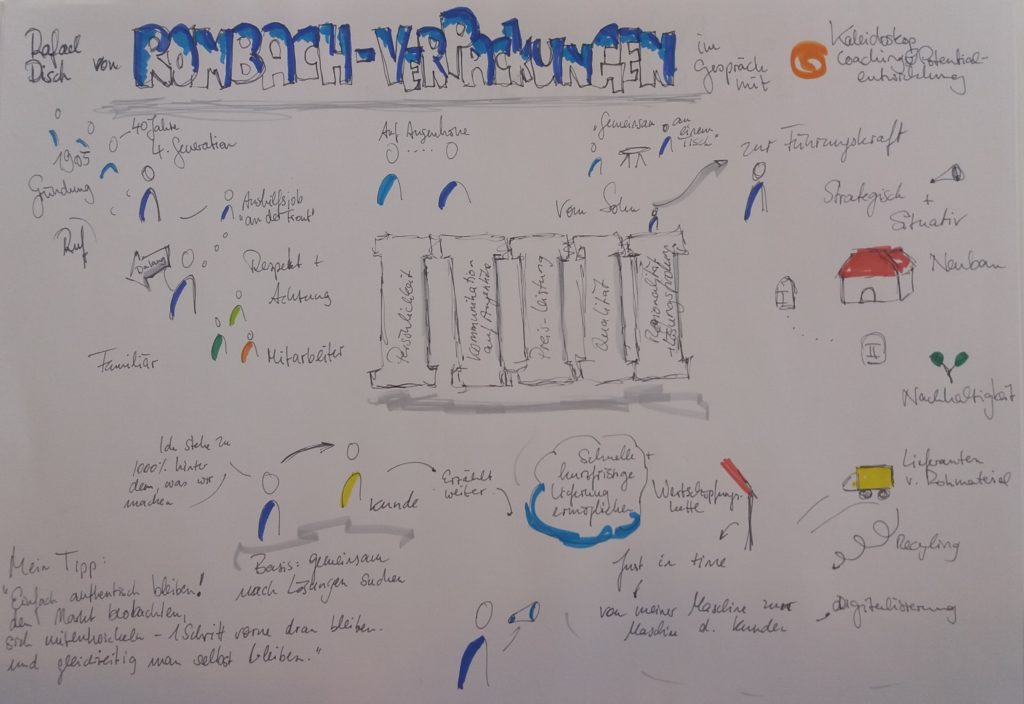 Rafael
Disch
von
ROMBACH-VERPACKUNGEN
im
Gespräch
mit
Kaleidoskop
Coaching & Potential-
entwicklung
1905
Gründung
40 Jahre
4. Generation
Aushilfsjob
"an der Front"
Ruf
Datung
Respekt +
Achtung
Mitarbeiter
Familiär
Auf Augenhöhe
"Gemeinsam
an
einem
Tisch"
Vom Sohn
zur Führungskraft
Strategisch
+
Situativ
Persönlichkeit
Kommunikation
auf Augenhöhe
Preis-Leistung
Qualität
Regionalität
+ Lösungsproblem
Neubau
I
II
Nachhaltigkeit
Ich stehe zu
1000% hinter
dem, was wir
machen
Kunde
Erzählt
weiter
Basis: gemeinsam
nach Lösungen suchen
Schnelle +
kurzfristige
Lieferung
ermöglichen
Wertschöpfungs-
kette
Just in time
von meiner Maschine zur
Maschine d. Kunden
Lieferanten
v. Rohmaterial
Recycling
Digitalisierung
Mein Tipp:
"Einfach authentisch bleiben!
den Markt beobachten,
sich mitentwickeln - 1 Schritt vorne dran bleiben.
und gleichzeitig man selbst bleiben."